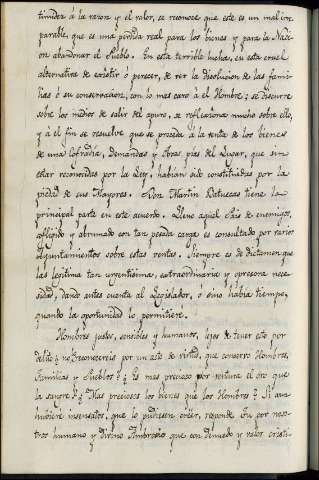 timidez á la razon y el valor, se reconoce que este es un mal irre
parable, que es una perdida real para los bienes y para la Naci
on abandonar el Pueblo. En esta terrible lucha, en esta cruel
alternativa de existir o perecer, de ver la disolucion de las fami-
lias ó su conservacion, con lo mas caro á el Hombre; se discurre
sobre los medios de salir del apuro, se reflexiona mucho sobre ello,
y á el fin se resuelve que se proceda á la venta de los bienes
de una Cofradia, demandas y Obras pias del Lugar, que sin
estar reconocidas por la Ley, habian sido constituidas por la
piedad de sus Mayores. Don Martin Batuecas tiene la
principal parte en este acuerdo. Lleno aquel Pais de enemigos,
afligido y abrumado con tan pesada carga es consultado por varios
Ayuntamientos sobre estas ventas. Siempre es de dictamen que
las legitima tan urgentisima, extraordinaria y opresora nece-
sidad, dando antes cuenta al Legislador, ó sino habia tiempo,
quando la oportunidad lo permitiere.
Hombres justos, sensibles y humanos, lejos de tener esto por
delito ¿no reconocereis por un acto de virtud, que conservo Hombres,
Familias y Pueblos? ¿Es mas precioso por ventura el oro que
la sangre? ¿Mas preciosos los bienes que los Hombres? Si aun
hubiere insensatos, que lo pudiesen creer, responde tu por noso-
tros humano y divino Ambrosio que con denuedo y valor cristi-